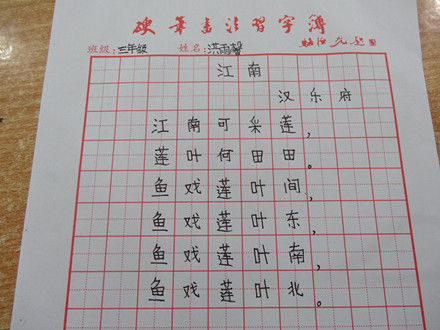 硬筆書法習字簿
班级:三年级 姓名:洪雨馨
江南
汉乐府
江南可采莲,
莲叶何田田。
鱼戏莲叶间,
鱼戏莲叶东,
鱼戏莲叶南,
鱼戏莲叶北。